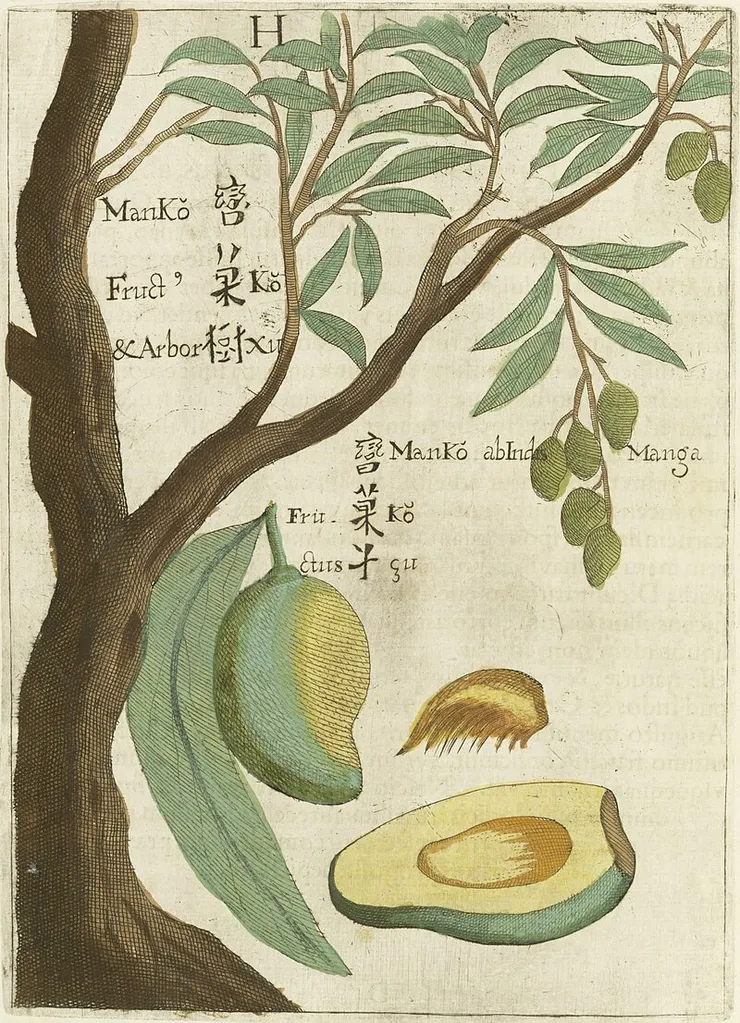 H
ManKŏ
Fruct’ 菓 Kŏ
&Arbor 樹 xu
ManKŏ abIndis Manga
Fru- 菓 Kŏ
ctus çu